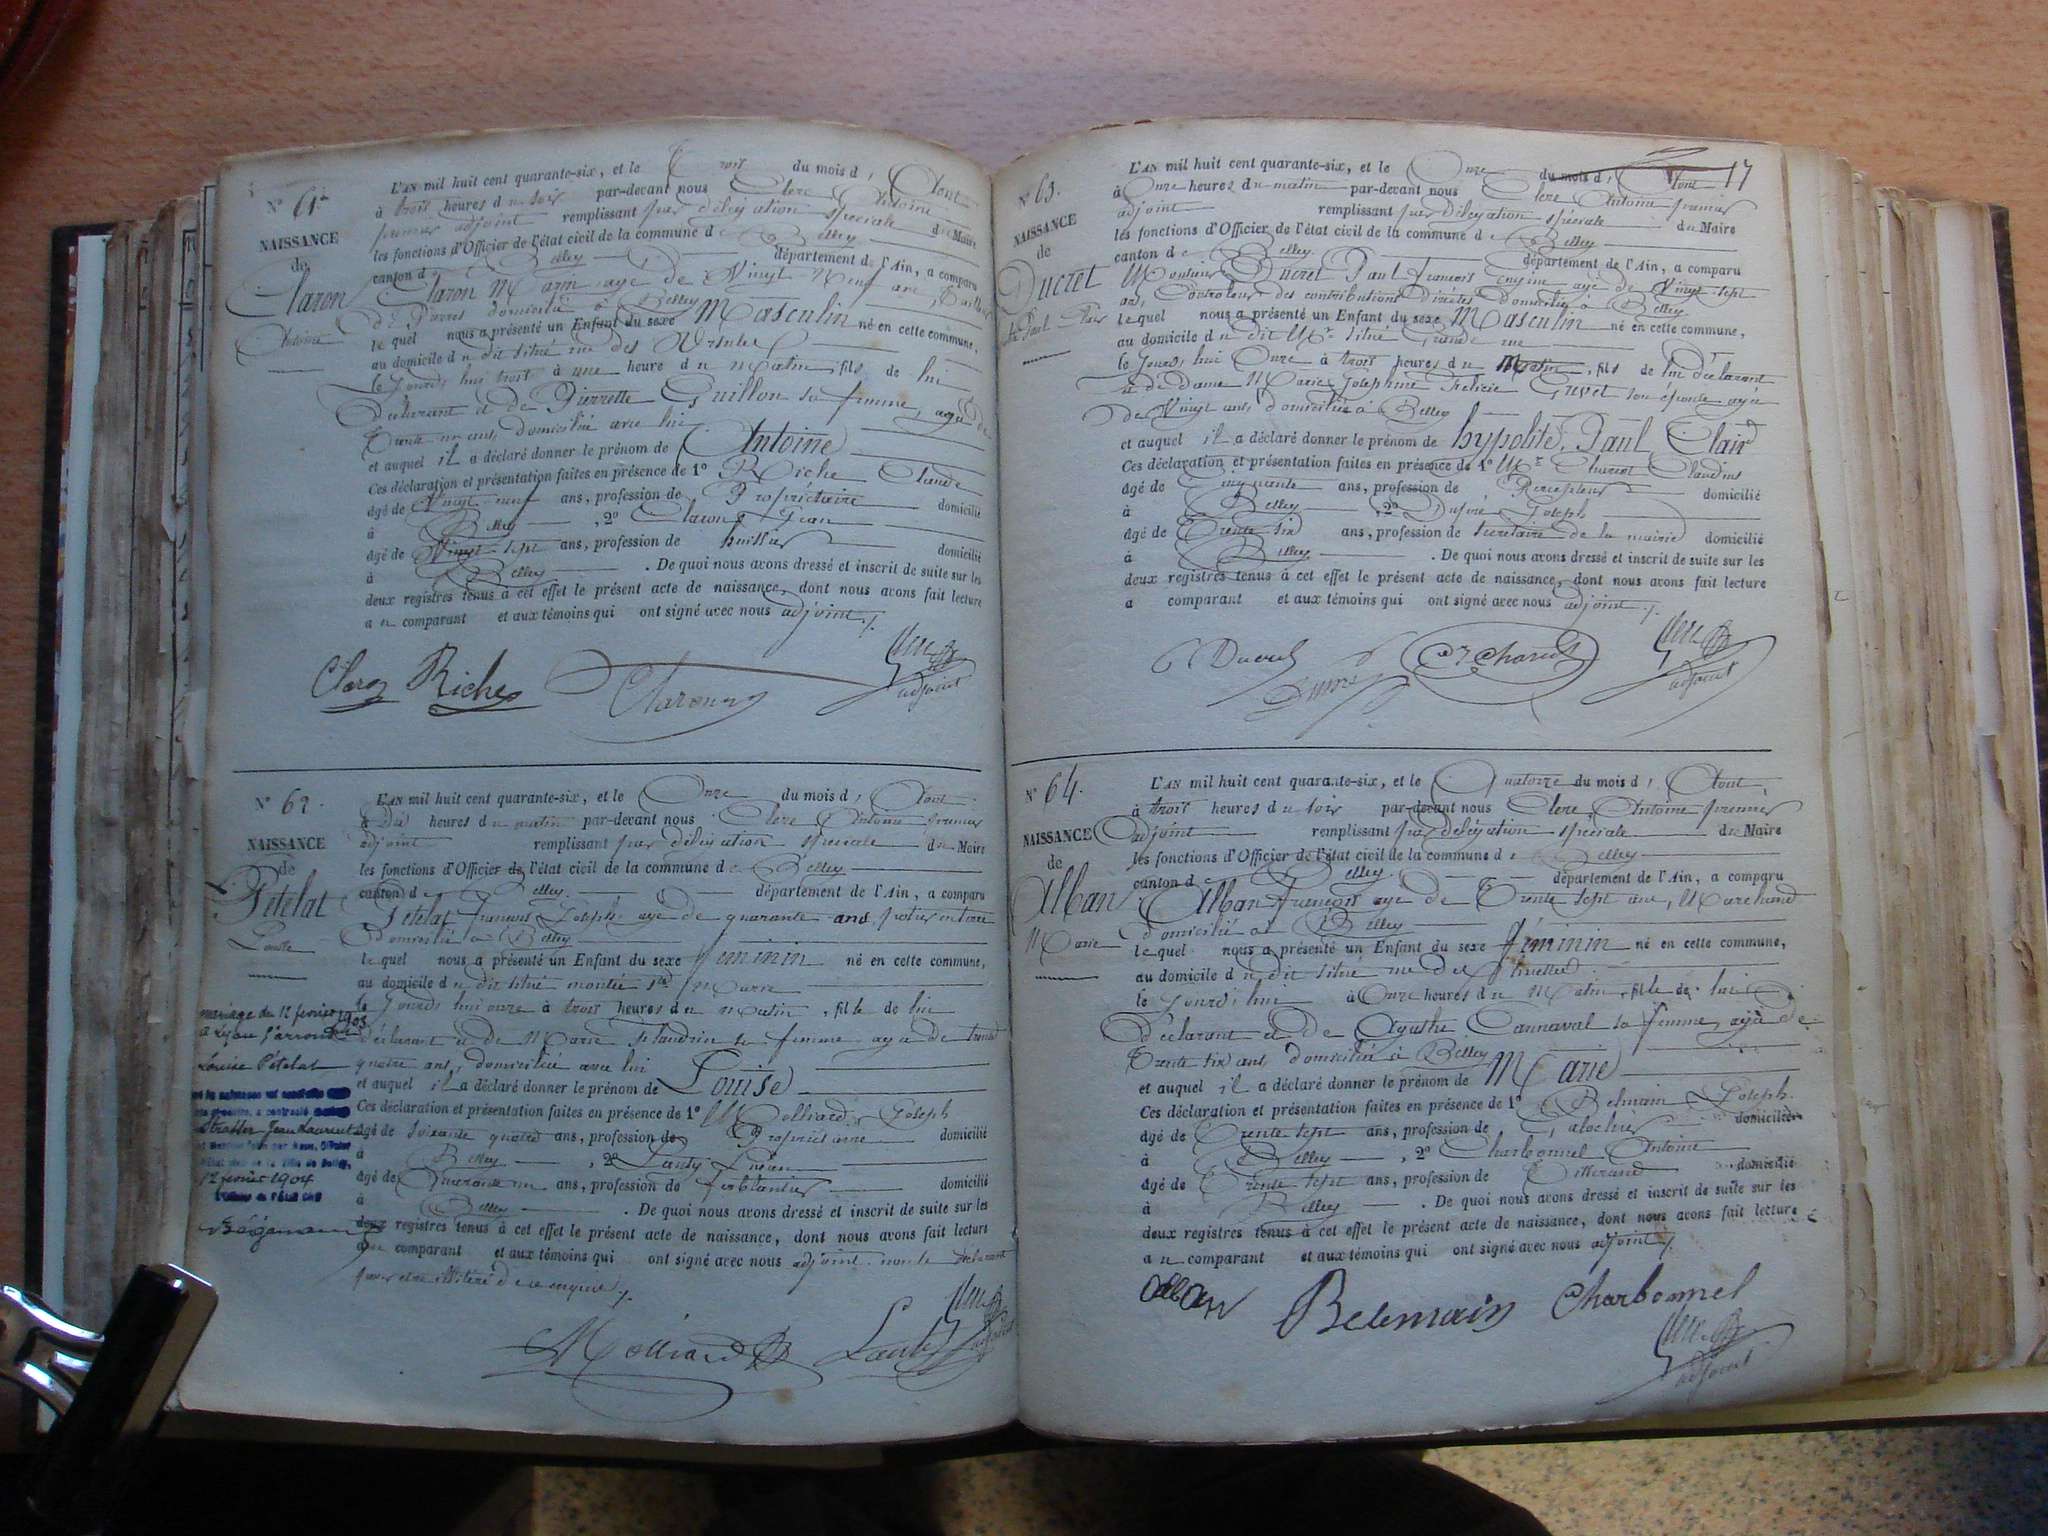 N° 61.
NAISSANCE
de
Claron
Antoine
L'AN mil huit cent quarante-six, et le Trois du mois d' Aout
à trois heures du soir par-devant nous Clerc Antoine
premier adjoint remplissant par délégation spéciale du Maire
les fonctions d'Officier de l'état civil de la commune de Belley
canton de Belley département de l'Ain, a comparu
Claron Marin agé de Vingt Neuf ans,
de Pierres domicilié à Belley
lequel nous a présenté un Enfant du sexe Masculin né en cette commune,
au domicile du dit situé rue des Ursules
le jourd'hui trois à une heure du matin, fils de lui
déclarant et de Pierrette Guillon sa femme, agée de
Trente un ans, domiciliée avec lui
et auquel il a déclaré donner le prénom de Antoine
Ces déclaration et présentation faites en présence de 1° Riche Claude
âgé de Vingt neuf ans, profession de Propriétaire domicilié
à Belley, 2° Claron Jean
âgé de Vingt sept ans, profession de huissier domicilié
à Belley. De quoi nous avons dressé et inscrit de suite sur les
deux registres tenus à cet effet le présent acte de naissance, dont nous avons fait lecture
au comparant et aux témoins qui ont signé avec nous adjoint
Claron Riche Claron Clerc
adjoint
N° 62.
NAISSANCE
de
Pételat
Louise
L'AN mil huit cent quarante-six, et le Onze du mois d' Aout
à Dix heures du matin par-devant nous Clerc Antoine premier
adjoint remplissant par délégation spéciale du Maire
les fonctions d'Officier de l'état civil de la commune de Belley
canton de Belley département de l'Ain, a comparu
Pételat françois Joseph agé de quarante ans, potier en terre
domicilié à Belley
lequel nous a présenté un Enfant du sexe féminin né en cette commune,
au domicile du dit situé montée Ste Marie
le jourd'hui onze à trois heures du matin, fille de lui
déclarant et de Marie Flandrin sa femme agée de trente
quatre ans, domiciliée avec lui
et auquel il a déclaré donner le prénom de Louise
Ces déclaration et présentation faites en présence de 1° Molliard Joseph
âgé de soixante quatre ans, profession de Propriétaire domicilié
à Belley, 2° Lauty
âgé de Quarante un ans, profession de ferblantier domicilié
à Belley. De quoi nous avons dressé et inscrit de suite sur les
deux registres tenus à cet effet le présent acte de naissance, dont nous avons fait lecture
au comparant et aux témoins qui ont signé avec nous adjoint non le déclarant
pour être illitéré de ce enquis
mariage du 12 février 1903
a Lyon
Louise Pételat
Strasser Jean Laurent
12 février 1904
Molliard Lauty Clerc
adjoint
17
N° 63.
NAISSANCE
de
Ducret
L'AN mil huit cent quarante-six, et le Onze du mois d' Aout
à Onze heures du matin par-devant nous Clerc Antoine premier
adjoint remplissant par délégation spéciale du Maire
les fonctions d'Officier de l'état civil de la commune de Belley
canton de Belley département de l'Ain, a comparu
Monsieur Ducret Paul françois agé de Vingt sept
ans, Controleur des contributions directes domicilié à Belley
lequel nous a présenté un Enfant du sexe Masculin né en cette commune,
au domicile du dit Mr situé Grande rue
le jourd'hui Onze à trois heures du Matin, fils de lui déclarant
et de Dame Marie Joséphine Félicie son épouse agée
de Vingt ans, domiciliée à Belley
et auquel il a déclaré donner le prénom de hypolite, Paul Clair
Ces déclaration et présentation faites en présence de 1° Mr Charcot Claudius
âgé de Cinquante ans, profession de Percepteur domicilié
à Belley, 2° Dupré Joseph
âgé de Trente six ans, profession de secrétaire de la mairie domicilié
à Belley. De quoi nous avons dressé et inscrit de suite sur les
deux registres tenus à cet effet le présent acte de naissance, dont nous avons fait lecture
a comparant et aux témoins qui ont signé avec nous adjoint
Ducret Clerc
adjoint
N° 64.
NAISSANCE
de
Alban
Marie
L'AN mil huit cent quarante-six, et le Quatorze du mois d' Aout
à trois heures du soir par-devant nous Clerc Antoine premier
adjoint remplissant par délégation spéciale du Maire
les fonctions d'Officier de l'état civil de la commune de Belley
canton de Belley département de l'Ain, a comparu
Alban françois agé de Trente sept ans, Marchand
domicilié à Belley
lequel nous a présenté un Enfant du sexe féminin né en cette commune,
au domicile du dit situé rue des
le jourd'hui à Onze heures du Matin, fille de lui
Déclarant et de Cannaval sa femme, agée de
Trente six ans, domiciliée à Belley
et auquel il a déclaré donner le prénom de Marie
Ces déclaration et présentation faites en présence de 1° Belmain Joseph
âgé de Trente sept ans, profession de Galochier domicilié
à Belley, 2° Charbonnel Antoine
âgé de Trente sept ans, profession de Tisserand domicilié
à Belley. De quoi nous avons dressé et inscrit de suite sur les
deux registres tenus à cet effet le présent acte de naissance, dont nous avons fait lecture
au comparant et aux témoins qui ont signé avec nous adjoint
Alban Belemain Charbonnel
Clerc
adjoint